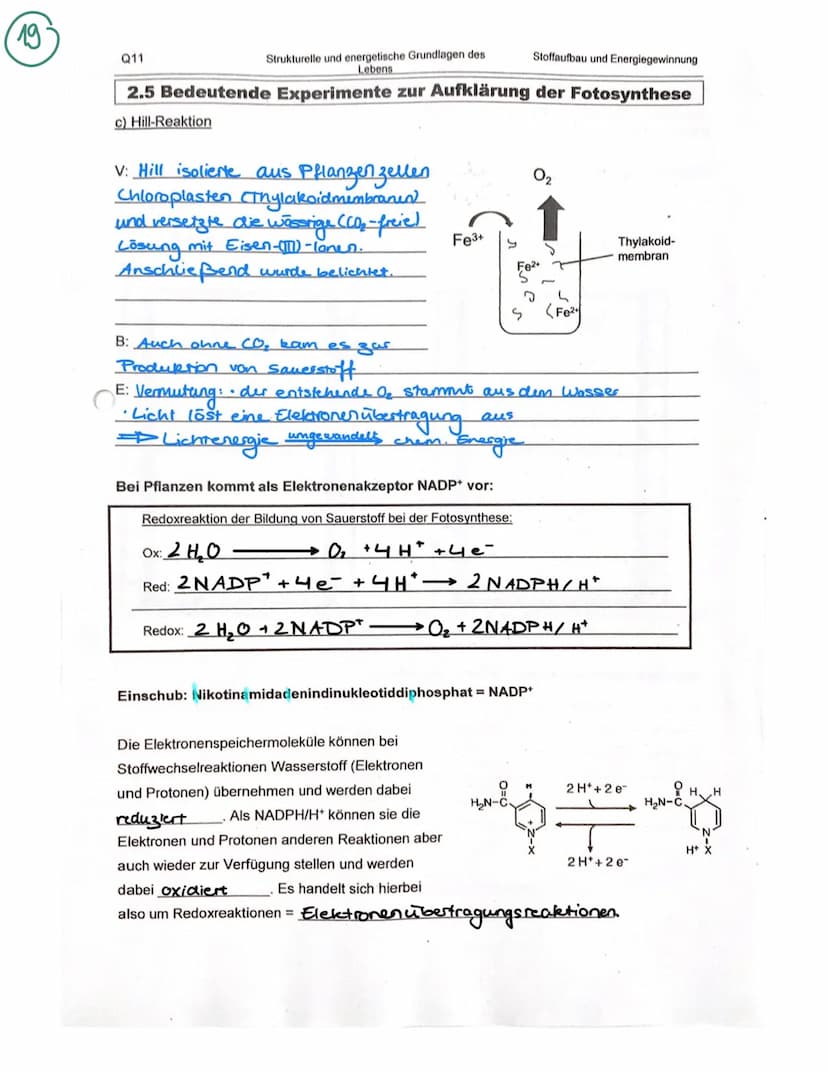 19
Q11
Strukturelle und energetische Grundlagen des
Lebens
Stoffaufbau und Energiegewinnung
2.5 Bedeutende Experimente zur Aufklärung der Fotosynthese
c) Hill-Reaktion
V: Hill isolierte aus Pflanzenzellen
Chloroplasten (Thylakoidmembranen)
und versetzte die wässrige (CO₂-freie)
Lösung mit Eisen-(III)-Ionen.
Anschließend wurde belichtet.
O₂
Fe³⁺
Thylakoid-
membran
Fe²⁺
Fe²⁺
B: Auch ohne CO₂ kam es zur
Produktion von Sauerstoff
E: Vermutung: · der entstehende O₂ stammt aus dem Wasser
· Licht löst eine Elektronenübertragung aus
⇒ Lichtenergie umgewandelt chem. Energie
Bei Pflanzen kommt als Elektronenakzeptor NADP⁺ vor:
Redoxreaktion der Bildung von Sauerstoff bei der Fotosynthese:
Ox: 2 H₂O ⟶ O₂ + 4 H⁺ + 4e⁻
Red: 2NADP⁺ + 4e⁻ + 4H⁺ ⟶ 2 NADPH/H⁺
Redox: 2 H₂O + 2NADP⁺ ⟶ O₂ + 2NADPH/H⁺
Einschub: Nikotinamidadenindinukleotiddiphosphat = NADP⁺
Die Elektronenspeichermoleküle können bei
Stoffwechselreaktionen Wasserstoff (Elektronen
und Protonen) übernehmen und werden dabei
reduziert. Als NADPH/H⁺ können sie die
Elektronen und Protonen anderen Reaktionen aber
auch wieder zur Verfügung stellen und werden
dabei oxidiert. Es handelt sich hierbei
also um Redoxreaktionen = Elektronenübertragungsreaktionen.
O H
H₂N-C
+
N
X
2 H⁺ + 2 e⁻
2 H⁺ + 2 e⁻
O H H
H₂N-C
N
H⁺ X